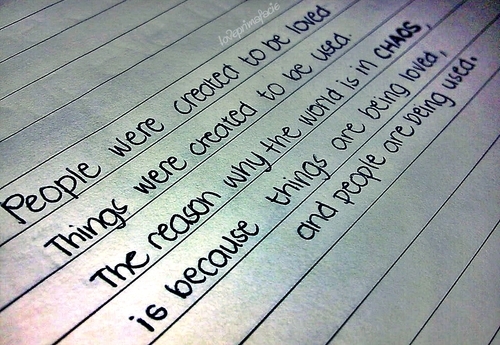 lo2eprimofacie
People were created to be loved
Things were created to be used.
The reason why the world is in CHAOS,
is because things are being loved,
and people are being used.